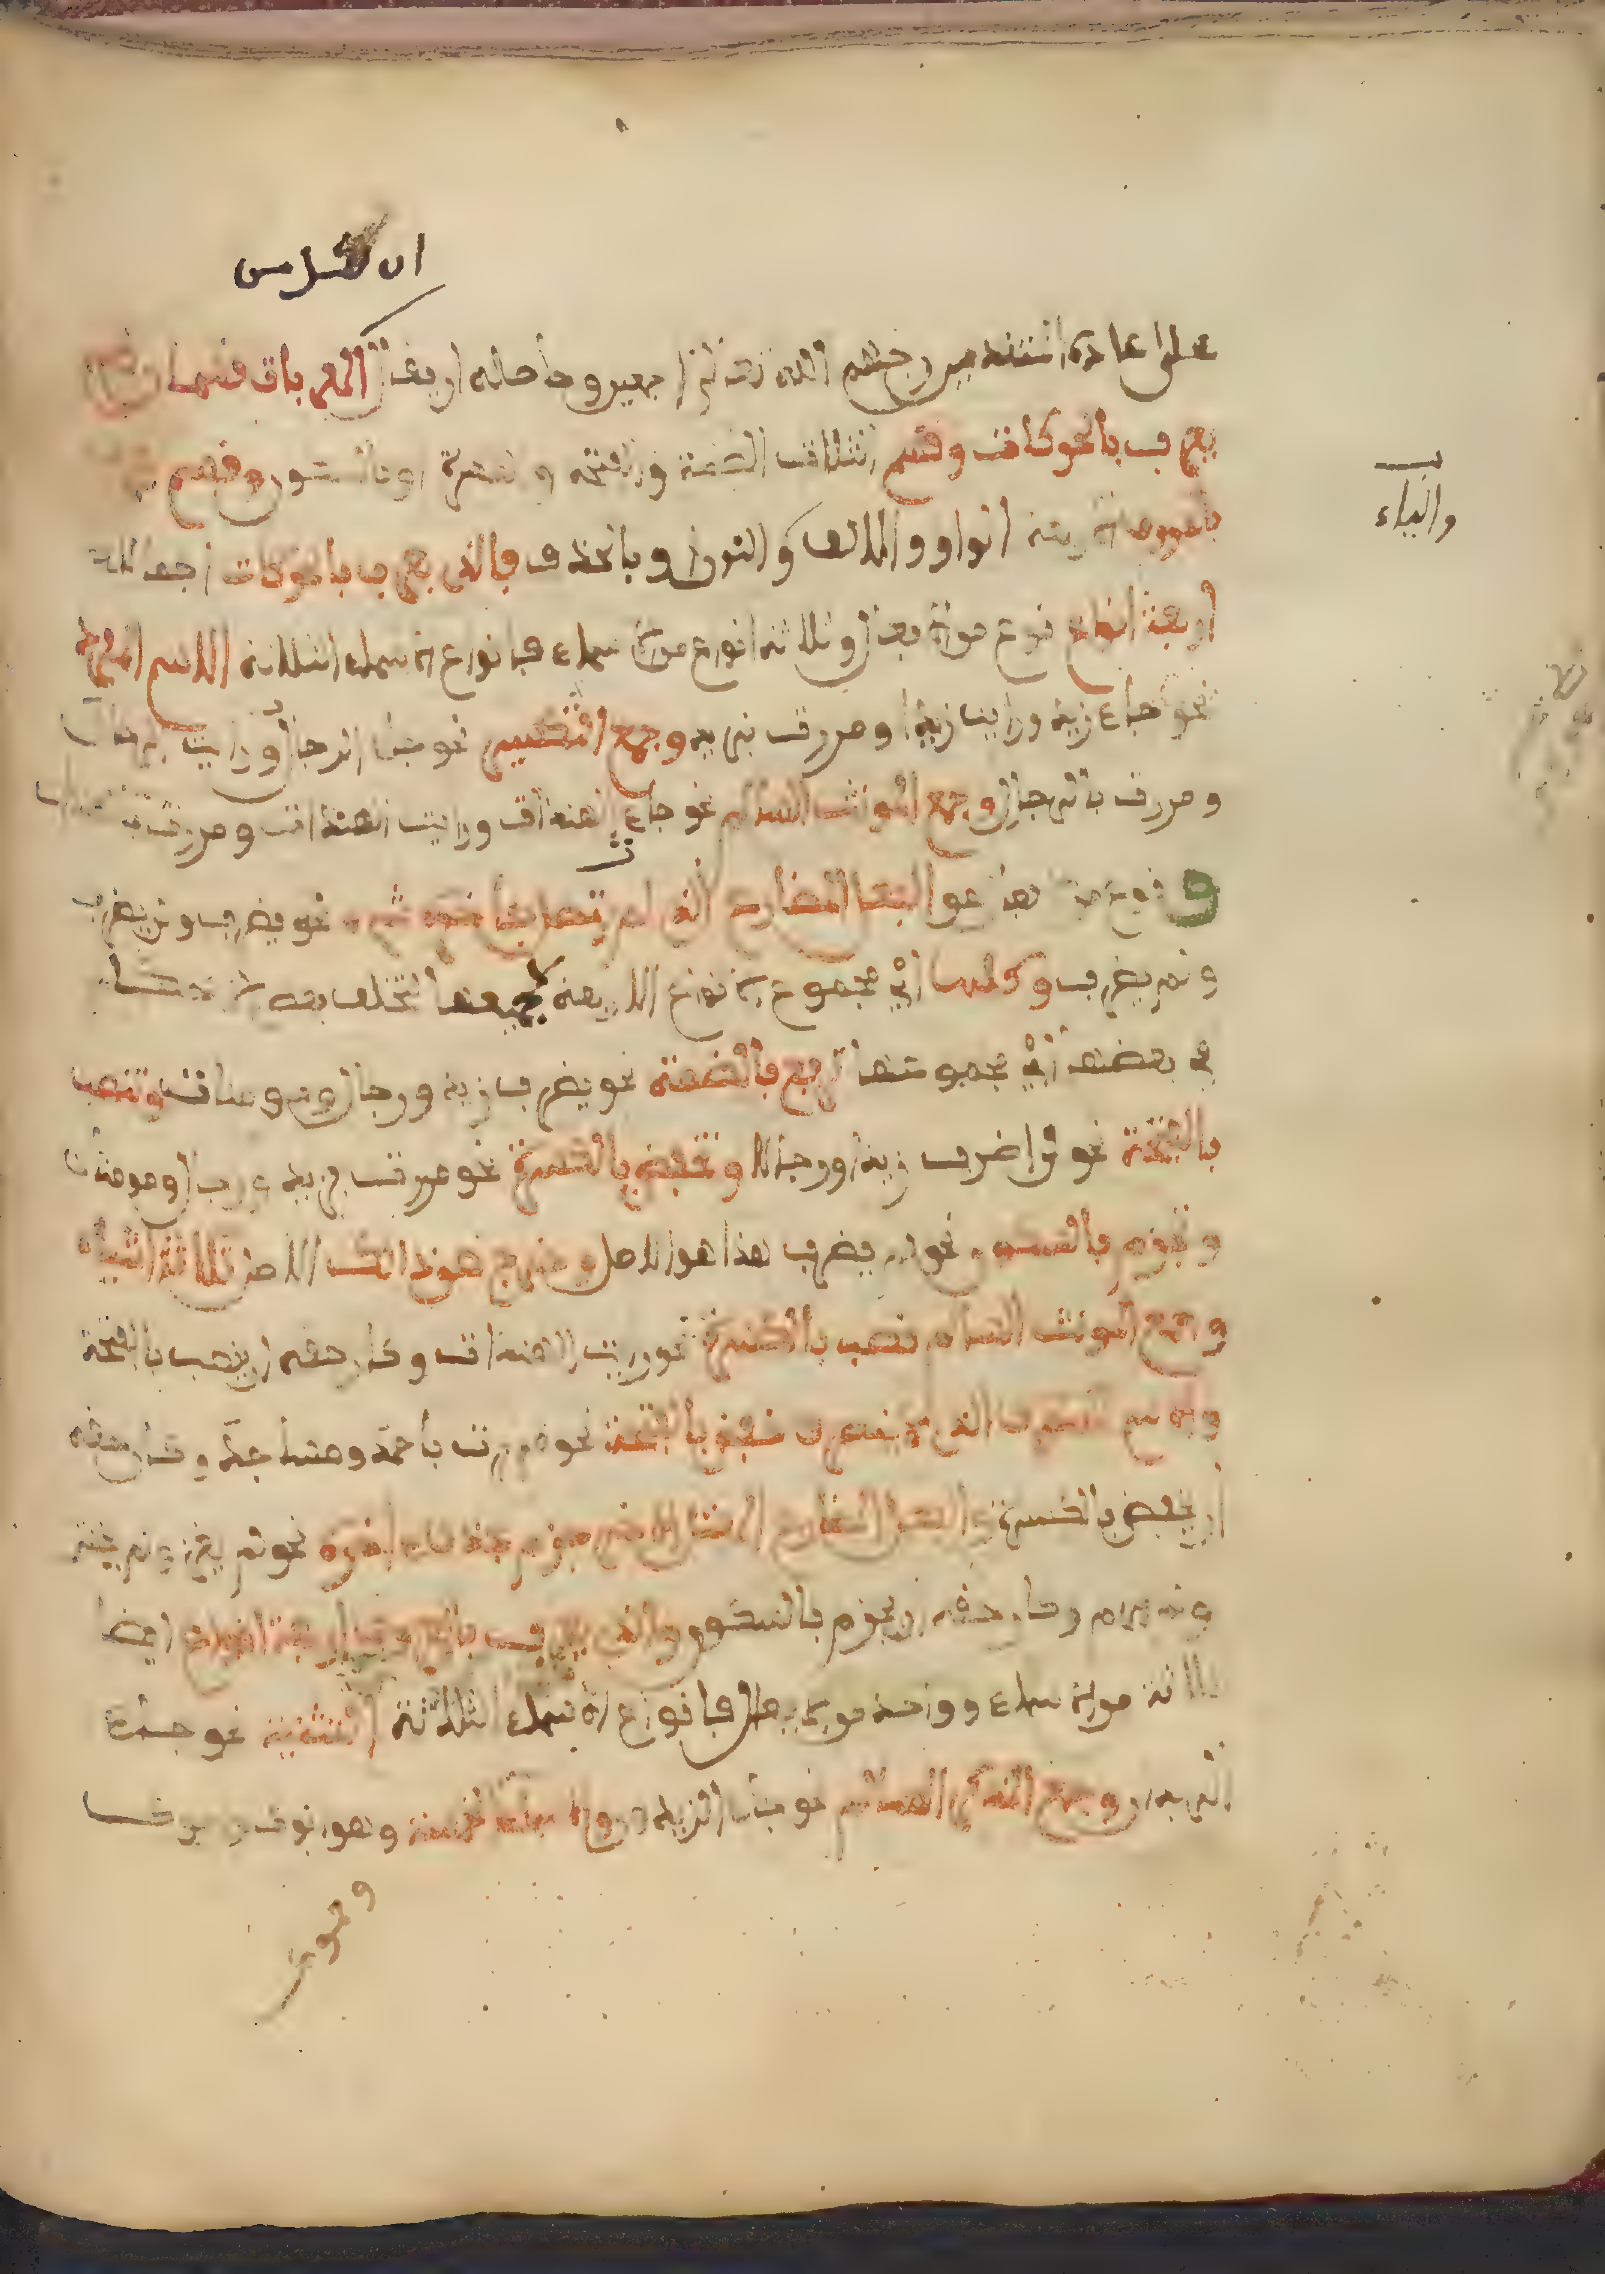 ان
على عادة المتقدمين رحمهم الله تعالى اجمعين وحاصله ان يقال المعربات قسمان قسم
يعرب بالحركات وقسم الثلاث الضمة والفتحة والكسرة او بالسكون وقسم
بالحروف الاربعة الواو والالف والنون او بالحذف فالذي يعرب بالحركات اجمالا
والياء
اربعة انواع نوع من الافعال وثلاثة انواع من الاسماء فانواع الاسماء الثلاثة الاسم المفرد
نحو جاء زيد ورايت زيدا ومررت بزيد وجمع التكسير نحو جاء الرجال ورايت الرجال
ومررت بالرجال وجمع المونث السالم نحو جاءت الهندات ورايت الهندات ومررت بالهندات
و نوع من هو الفعل المضارع الذي لم يتصل باخره شيء نحو يضرب ولن يضرب
ولم يضرب وكلها اي مجموع الانواع الاربعة لا جميعها لتخلف بعض
في بعضها اي مجموعها ترفع بالضمة نحو يضرب زيد ورجال ومومنات وتنصب
بالفتحة نحو لن اضرب زيدا ورجالا وتخفض بالكسرة نحو مررت بزيد ورجال ومومنات
وتجزم بالسكون نحو لم يضرب هذا هو الاصل وخرج عن ذلك الاصل ثلاثة اشياء
وجمع المونث السالم ينصب بالكسرة نحو رايت الهندات وكان حقه ان ينصب بالفتحة
والاسم الذي لا ينصرف يخفض بالفتحة نحو مررت باحمد ومساجد وكان حقه
ان يخفض بالكسرة والفعل المضارع المعتل الاخر يجزم بحذف اخره نحو لم يغز ولم يخش
ولم يرم وكان حقه ان يجزم بالسكون والذي يعرب بالحروف اربعة انواع ايضا
ثلاثة من الاسماء وواحد من الافعال فانواع الاسماء الثلاثة التثنية نحو جاء
الزيدان وجمع المذكر السالم نحو جاء الزيدون والاسماء الخمسة وهو ابوك واخوك
وحموك